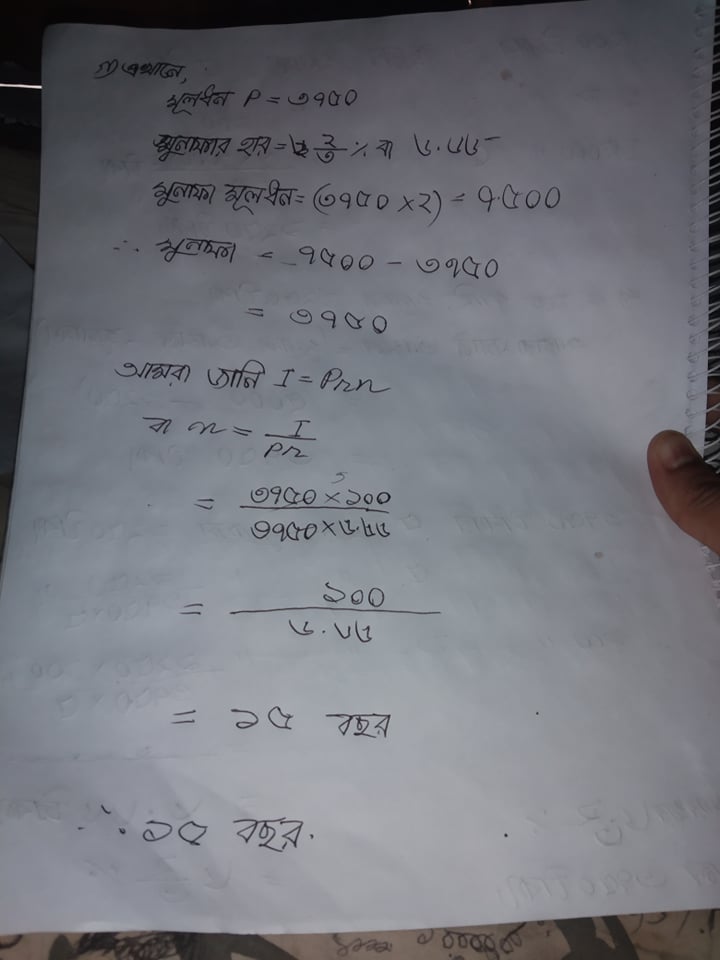 এখানে,
মূলধন P = ৩৭৫০
মুনাফার হার = ৬ ২/৩ % বা ৬.৬৬
মুনাফা মূলধন = (৩৭৫০ × ২) = ৭৫০০
∴ মুনাফা = ৭৫০০ - ৩৭৫০
= ৩৭৫০
আমরা জানি I = Prn
বা n = I/Pr
= ৩৭৫০ × ১০০ / ৩৭৫০ × ৬.৬৬
= ১০০ / ৬.৬৬
= ১৫ বছর
∴ ১৫ বছর.